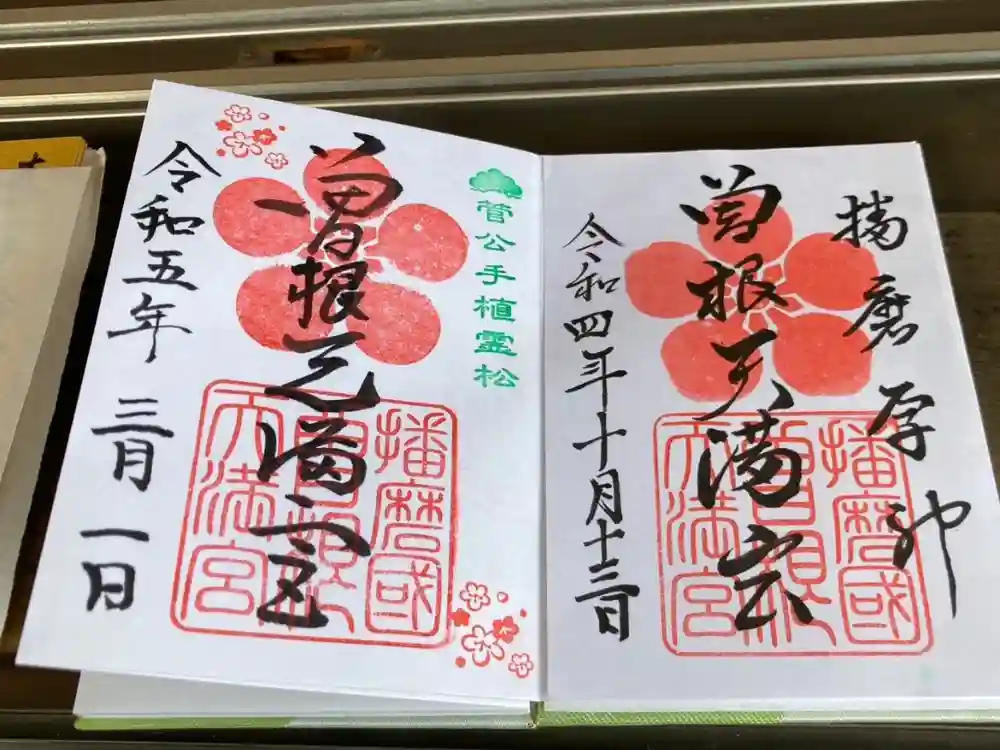 播磨 神
曽根天満宮
播磨國
曽根
天満宮
令和四年十月十三日
菅公手植霊松
曽根天満宮
播磨國
曽根
天満宮
令和五年三月一日